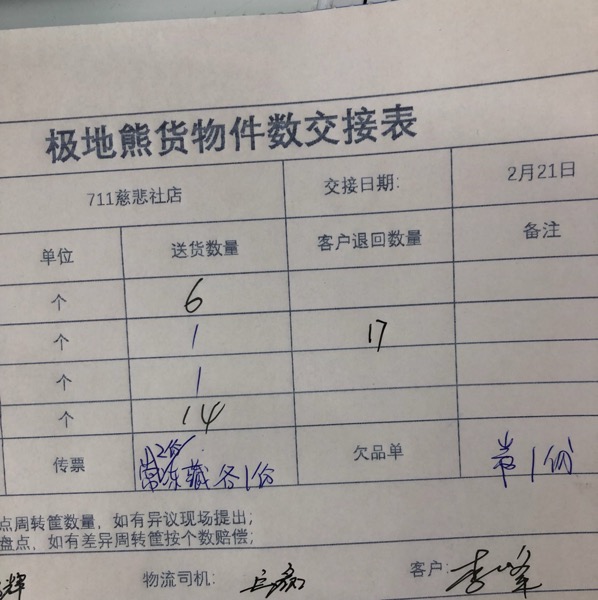 极地熊货物件数交接表
711慈悲社店 交接日期: 2月21日
单位 送货数量 客户退回数量 备注
个 6
个 1 17
个 1
个 14
2份
传票 常冻藏各1份 欠品单 常1份
点周转筐数量，如有异议现场提出;
盘点，如有差异周转筐按个数赔偿;
辉 物流司机: 客户: 李峰